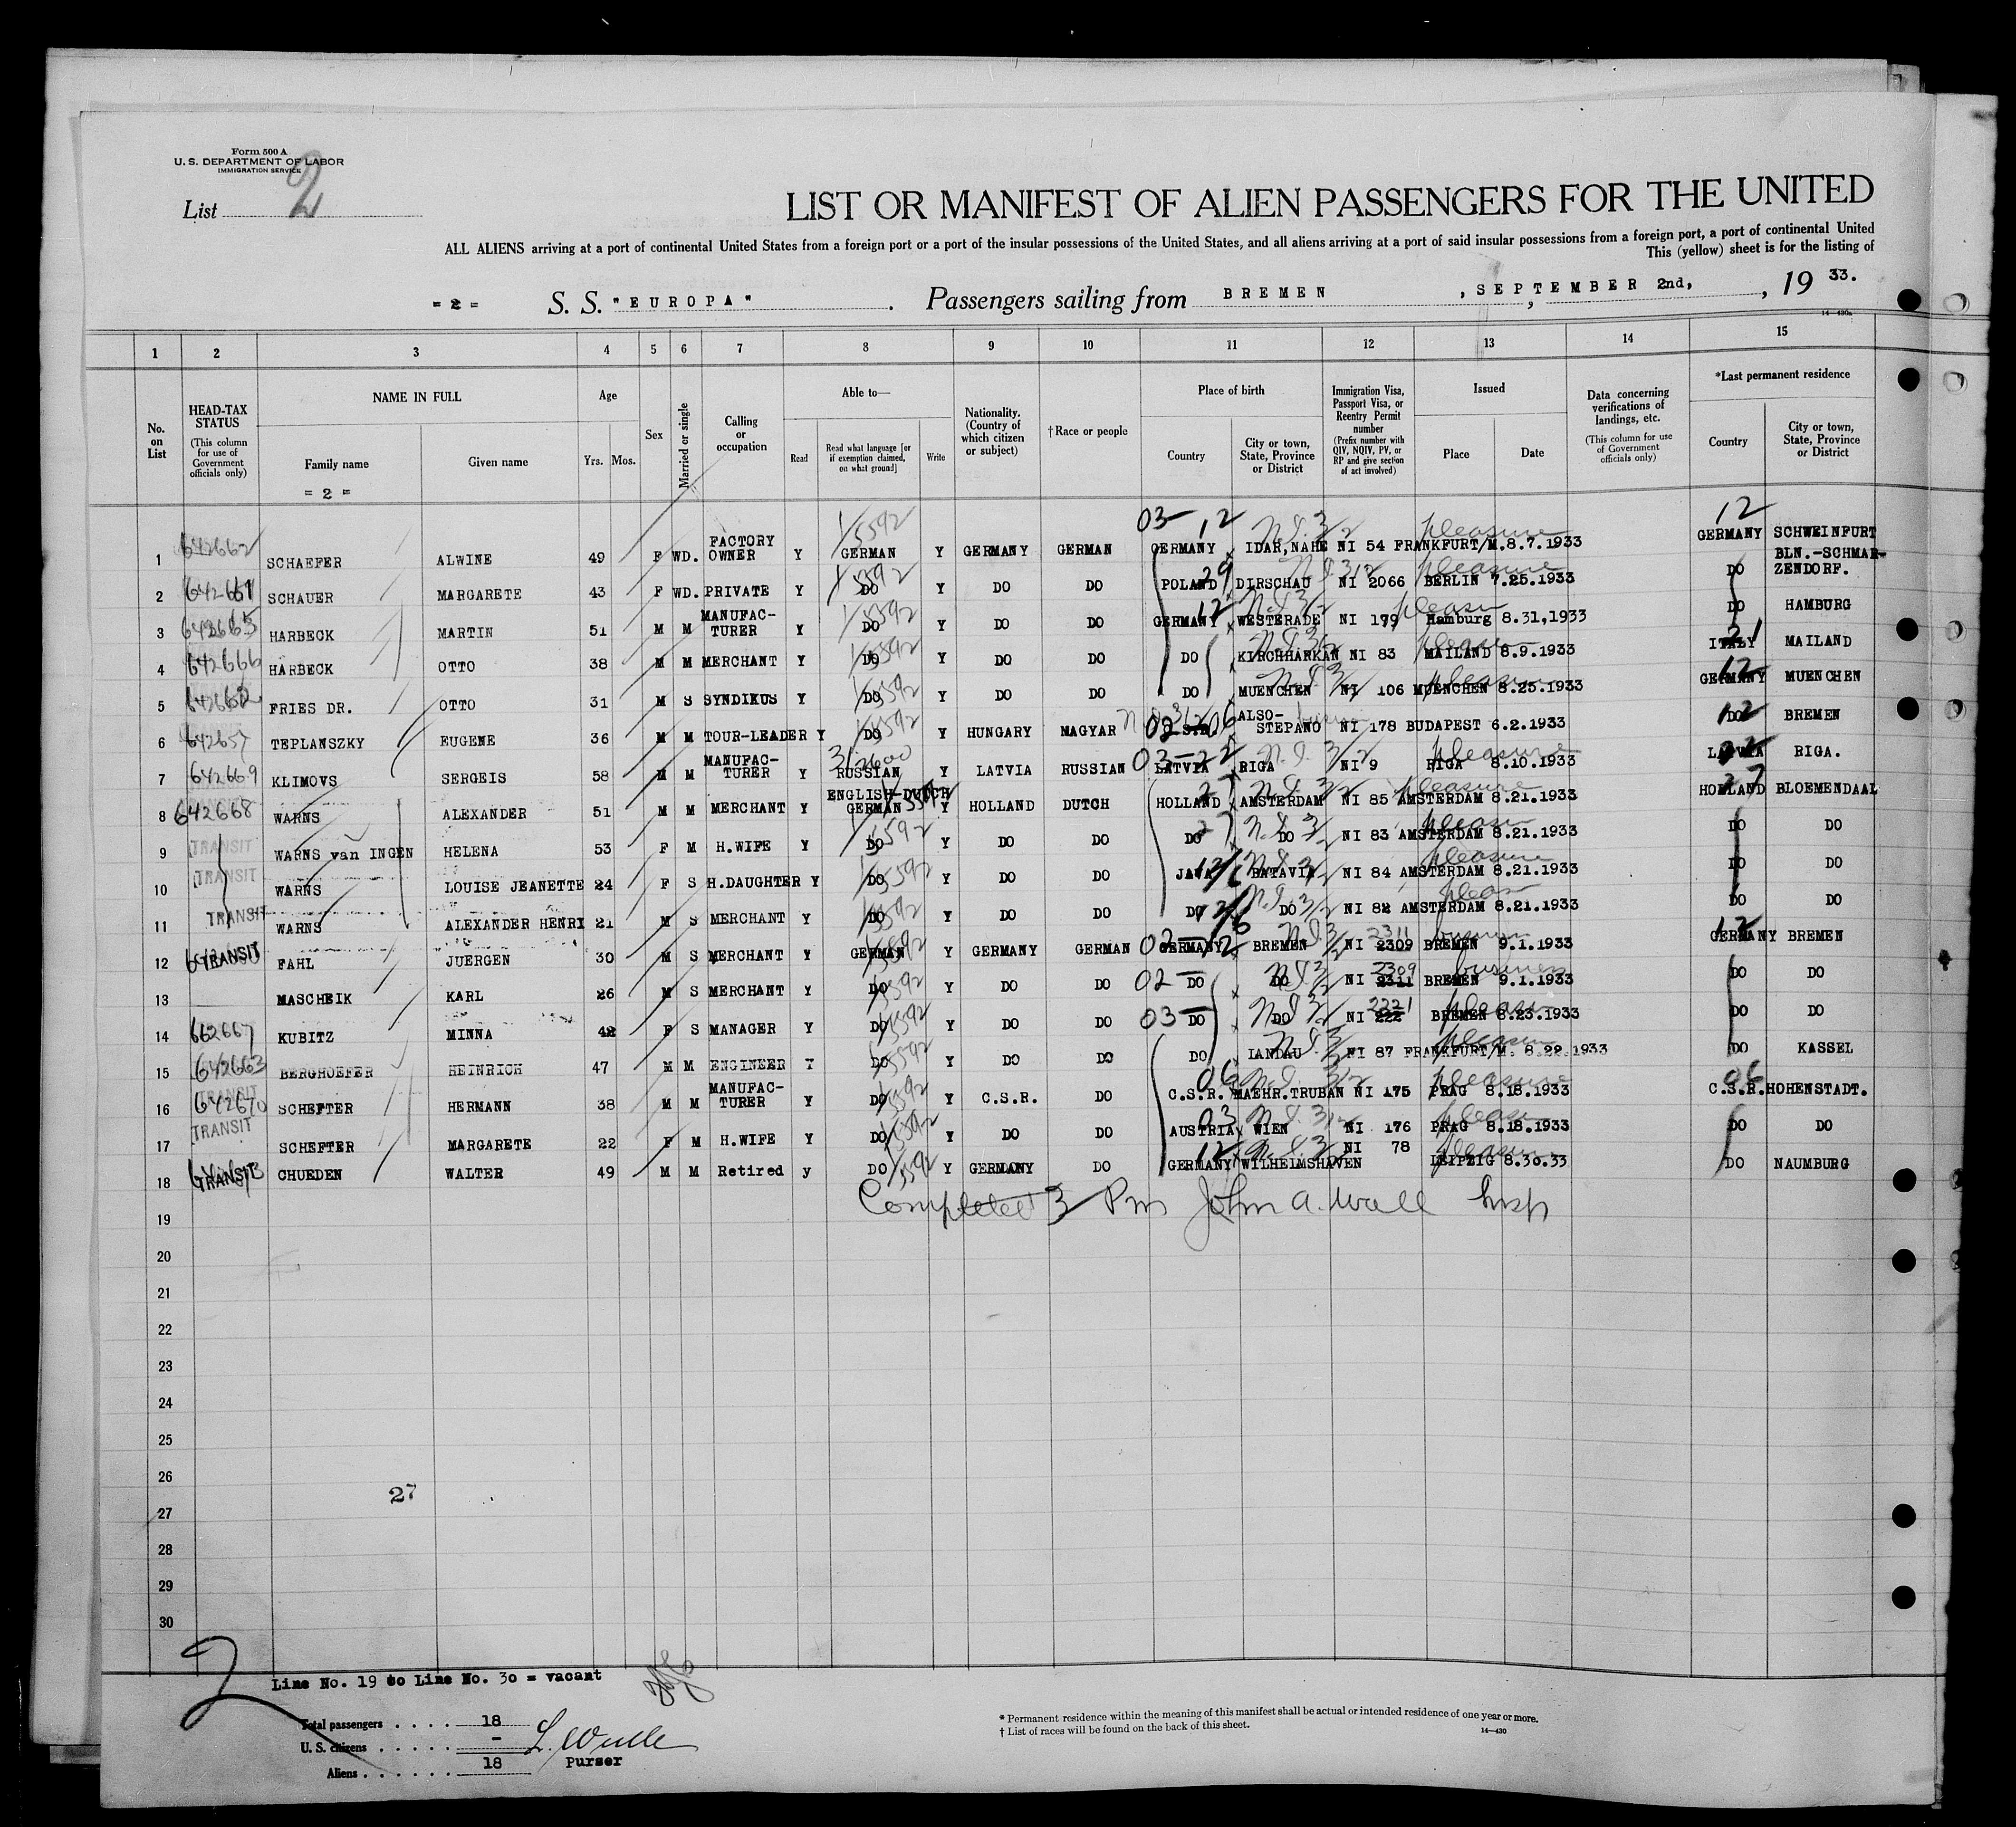 Form 500 A
U. S. DEPARTMENT OF LABOR
IMMIGRATION SERVICE
List 2
LIST OR MANIFEST OF ALIEN PASSENGERS FOR THE UNITED
ALL ALIENS arriving at a port of continental United States from a foreign port or a port of the insular possessions of the United States, and all aliens arriving at a port of said insular possessions from a foreign port, a port of continental United
This (yellow) sheet is for the listing of
= 2 = S. S. "EUROPA" . Passengers sailing from BREMEN , SEPTEMBER 2nd, , 19 33.
14—430a
1 2 3 4 5 6 7 8 9 10 11 12 13 14 15
No. on List
HEAD-TAX STATUS (This column for use of Government officials only)
NAME IN FULL Family name Given name
= 2 =
Age Yrs. Mos.
Sex
Married or single
Calling or occupation
Able to— Read Read what language [or if exemption claimed, on what ground] Write
Nationality. (Country of which citizen or subject)
† Race or people
Place of birth Country City or town, State, Province or District
Immigration Visa, Passport Visa, or Reentry Permit number (Prefix number with QIV, NQIV, PV, or RP and give section of act involved)
Issued Place Date
Data concerning verifications of landings, etc. (This column for use of Government officials only)
*Last permanent residence Country City or town, State, Province or District
1 642662 SCHAEFER ALWINE 49 F WD. FACTORY OWNER Y GERMAN Y GERMANY GERMAN GERMANY IDAR,NAHE NI 54 FRANKFURT/M.8.7.1933 pleasure GERMANY SCHWEINFURT
2 SCHAUER MARGARETE 43 F WD. PRIVATE Y DO Y DO DO POLAND DIRSCHAU NI 2066 BERLIN 7.25.1933 pleasure DO BLN.-SCHMAR-ZENDORF.
3 642665 HARBECK MARTIN 51 M M MANUFAC-TURER Y DO Y DO DO GERMANY WESTERADE NI 179 Hamburg 8.31,1933 DO HAMBURG
4 642666 HARBECK OTTO 38 M M MERCHANT Y DO Y DO DO DO KIRCHHARKAN NI 83 MAILAND 8.9.1933 ITALY MAILAND
5 FRIES DR. OTTO 31 M S SYNDIKUS Y DO Y DO DO DO MUENCHEN NI 106 MUENCHEN 8.25.1933 GERMANY MUENCHEN
6 642657 TEPLANSZKY EUGENE 36 M M TOUR-LEADER Y DO Y HUNGARY MAGYAR ALSO-STEPANO NI 178 BUDAPEST 6.2.1933 DO BREMEN
7 642669 KLIMOVS SERGEIS 58 M M MANUFAC-TURER Y RUSSIAN Y LATVIA RUSSIAN LATVIA RIGA NI 9 RIGA 8.10.1933 pleasure LATVIA RIGA.
8 642668 WARNS ALEXANDER 51 M M MERCHANT Y ENGLISH-DUTCH GERMAN Y HOLLAND DUTCH HOLLAND AMSTERDAM NI 85 AMSTERDAM 8.21.1933 pleasure HOLLAND BLOEMENDAAL
9 TRANSIT WARNS van INGEN HELENA 53 F M H.WIFE Y DO Y DO DO DO DO NI 83 AMSTERDAM 8.21.1933 DO DO
10 TRANSIT WARNS LOUISE JEANETTE 24 F S H.DAUGHTER Y DO Y DO DO JAVA BATAVIA NI 84 AMSTERDAM 8.21.1933 pleasure DO DO
11 TRANSIT WARNS ALEXANDER HENRI 21 M S MERCHANT Y DO Y DO DO DO DO NI 82 AMSTERDAM 8.21.1933 DO DO
12 TRANSIT FAHL JUERGEN 30 M S MERCHANT Y GERMAN Y GERMANY GERMAN GERMANY BREMEN NI 2309 2311 BREMEN 9.1.1933 GERMANY BREMEN
13 MASCHEIK KARL 26 M S MERCHANT Y DO Y DO DO DO DO NI 2311 2309 BREMEN 9.1.1933 business DO DO
14 662667 KUBITZ MINNA 42 F S MANAGER Y DO Y DO DO DO DO NI 222 2221 BREMEN 8.23.1933 DO DO
15 642663 BERGHOEFER HEINRICH 47 M M ENGINEER Y DO Y DO DO DO LANDAU NI 87 FRANKFURT/M. 8.22.1933 DO KASSEL
16 TRANSIT 642670 SCHEFTER HERMANN 38 M M MANUFAC-TURER Y DO Y C.S.R. DO C.S.R. MAEHR.TRUBAN NI 175 PRAG 8.18.1933 pleasure C.S.R. HOHENSTADT.
17 TRANSIT SCHEFTER MARGARETE 22 F M H.WIFE Y DO Y DO DO AUSTRIA WIEN NI 176 PRAG 8.18.1933 DO DO
18 TRANSIT CHUEDEN WALTER 49 M M Retired y DO Y GERMANY DO GERMANY WILHELMSHAVEN NI 78 LEIPZIG 8.30.33 DO NAUMBURG
Completed 3 Pm John A. Wall Insp
19
20
21
22
23
24
25
26
27
27
28
29
30
2
Line No. 19 to Line No. 30 = vacant
Total passengers . . . . 18
U. S. citizens . . . . . -
Aliens . . . . . . 18
Purser
* Permanent residence within the meaning of this manifest shall be actual or intended residence of one year or more.
† List of races will be found on the back of this sheet.
14—430